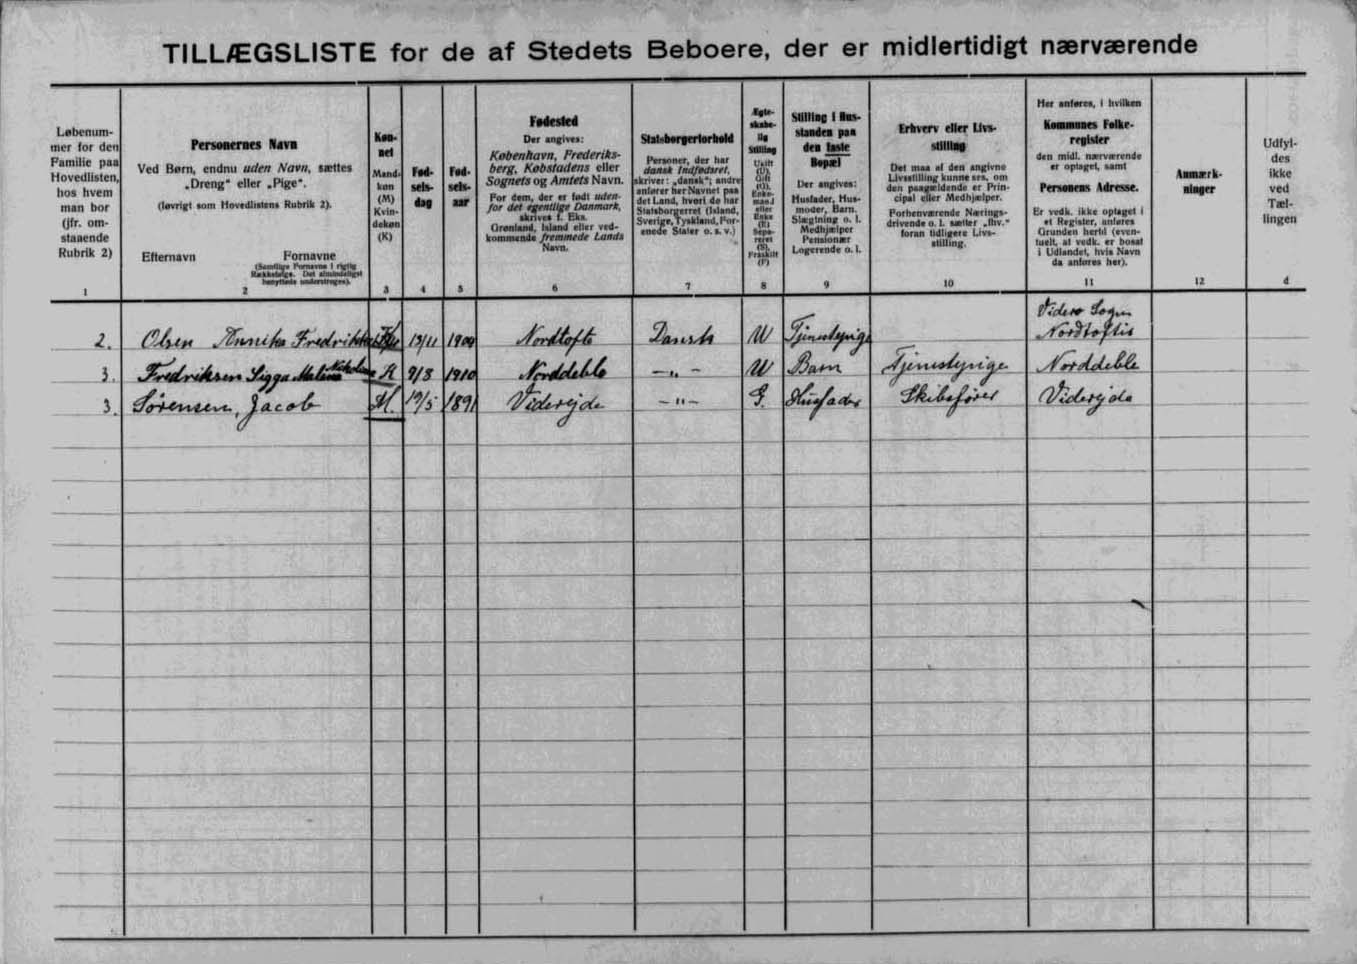 TILLÆGSLISTE for de af Stedets Beboere, der er midlertidigt nærværende
Løbenum-
mer for den
Familie paa
Hovedlisten,
hos hvem
man bor
(jfr. om-
staaende
Rubrik 2)
1
Personernes Navn
Ved Børn, endnu uden Navn, sættes
„Dreng“ eller „Pige“.
(Iøvrigt som Hovedlistens Rubrik 2).
Efternavn Fornavne
(Samtlige Fornavne i rigtig
Rækkefølge. Det almindeligst
benyttede understreges).
2
Køn-
net
Mand-
køn
(M)
Kvin-
dekøn
(K)
3
Fød-
sels-
dag
4
Fød-
sels-
aar
5
Fødested
Der angives:
København, Frederiks-
berg, Købstadens eller
Sognets og Amtets Navn.
For dem, der er født uden-
for det egentlige Danmark,
skrives f. Eks.
Grønland, Island eller ved-
kommende fremmede Lands
Navn.
6
Statsborgerforhold
Personer, der har
dansk Indfødsret,
skriver: „dansk“; andre
anfører her Navnet paa
det Land, hvori de har
Statsborgerret (Island,
Sverige, Tyskland, For-
enede Stater o. s. v.)
7
Egte-
skabe-
lig
Stilling
Ugift
(U),
Gift
(G),
Enke-
mand
eller
Enke
(E)
Sepa-
reret
(S),
Fraskilt
(F)
8
Stilling i Hus-
standen paa
den faste
Bopæl
Der angives:
Husfader, Hus-
moder, Barn,
Slægtning o. l.
Medhjælper
Pensionær
Logerende o. l.
9
Erhverv eller Livs-
stilling
Det maa af den angivne
Livsstilling kunne ses, om
den paagældende er Prin-
cipal eller Medhjælper.
Forhenværende Nærings-
drivende o. l. sætter „fhv.“
foran tidligere Livs-
stilling.
10
Her anføres, i hvilken
Kommunes Folke-
register
den midl. nærværende
er optaget, samt
Personens Adresse.
Er vedk. ikke optaget i
et Register, anføres
Grunden hertil (even-
tuelt, at vedk. er bosat
i Udlandet, hvis Navn
da anføres her).
11
Anmærk-
ninger
12
Udfyl-
des
ikke
ved
Tæl-
lingen
d
Viderø Sogn
2. Olsen Annika Fredrikka 13/11 1904 Nordtofte Dansk U Tjenestepige Nordtoftis
3. Fredriksen Sigga Malena Nikolina K 9/8 1910 Norddeble -„- U Barn Tjenestepige Norddeble
3. Sørensen, Jacob M. 19/5 1891 Viderejde -„- G. Husfader Skibsfører Viderejde